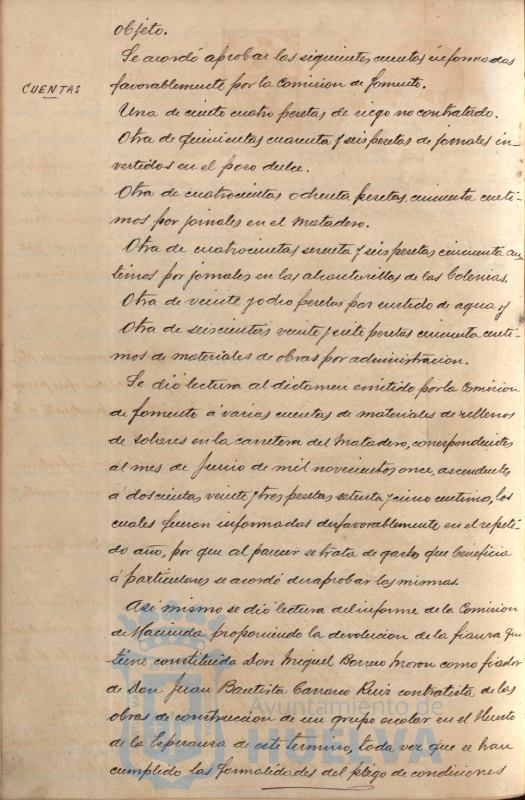 objeto.
Se acordó aprobar las siguientes cuentas informadas
CUENTAS
favorablemente por la Comision de fomento.
Una de ciento cuatro pesetas de riego no contratado.
Otra de quinientas cuarenta y seis pesetas de jornales in-
vertidos en el pozo dulce.
Otra de cuatrocientas ochenta pesetas cincuenta centi-
mos por jornales en el Matadero.
Otra de cuatrocientas sesenta y seis pesetas cincuenta cen-
timos por jornales en las alcantarillas de las Colonias.
Otra de veinte y ocho pesetas por surtido de agua y
Otra de seiscientas veinte y siete pesetas cincuenta centi-
mos de materiales de obras por administracion.
Se dió lectura al dictamen emitido por la Comision
de fomento á varias cuentas de materiales de rellenos
de solares en la carretera del Matadero, correspondientes
al mes de Junio de mil novecientos once, ascendentes
á doscientas veinte y tres pesetas setenta y cinco centimos, las
cuales fueron informadas desfavorablemente en el repeti-
do año, por que al parecer se trata de gasto que beneficia
á particulares se acordó desaprobar las mismas.
Asi mismo se dió lectura del informe de la Comision
de Hacienda proponiendo la devolucion de la fianza que
tiene constituida Don Miguel Borrero Moron como fiador
de Don Juan Bautista Carrasco Ruiz contratista de las
obras de construccion de un grupo escolar en el Huerto
de la Esperanza de este termino, toda vez que se han
cumplido las formalidades del pliego de condiciones
Ayuntamiento de
HUELVA